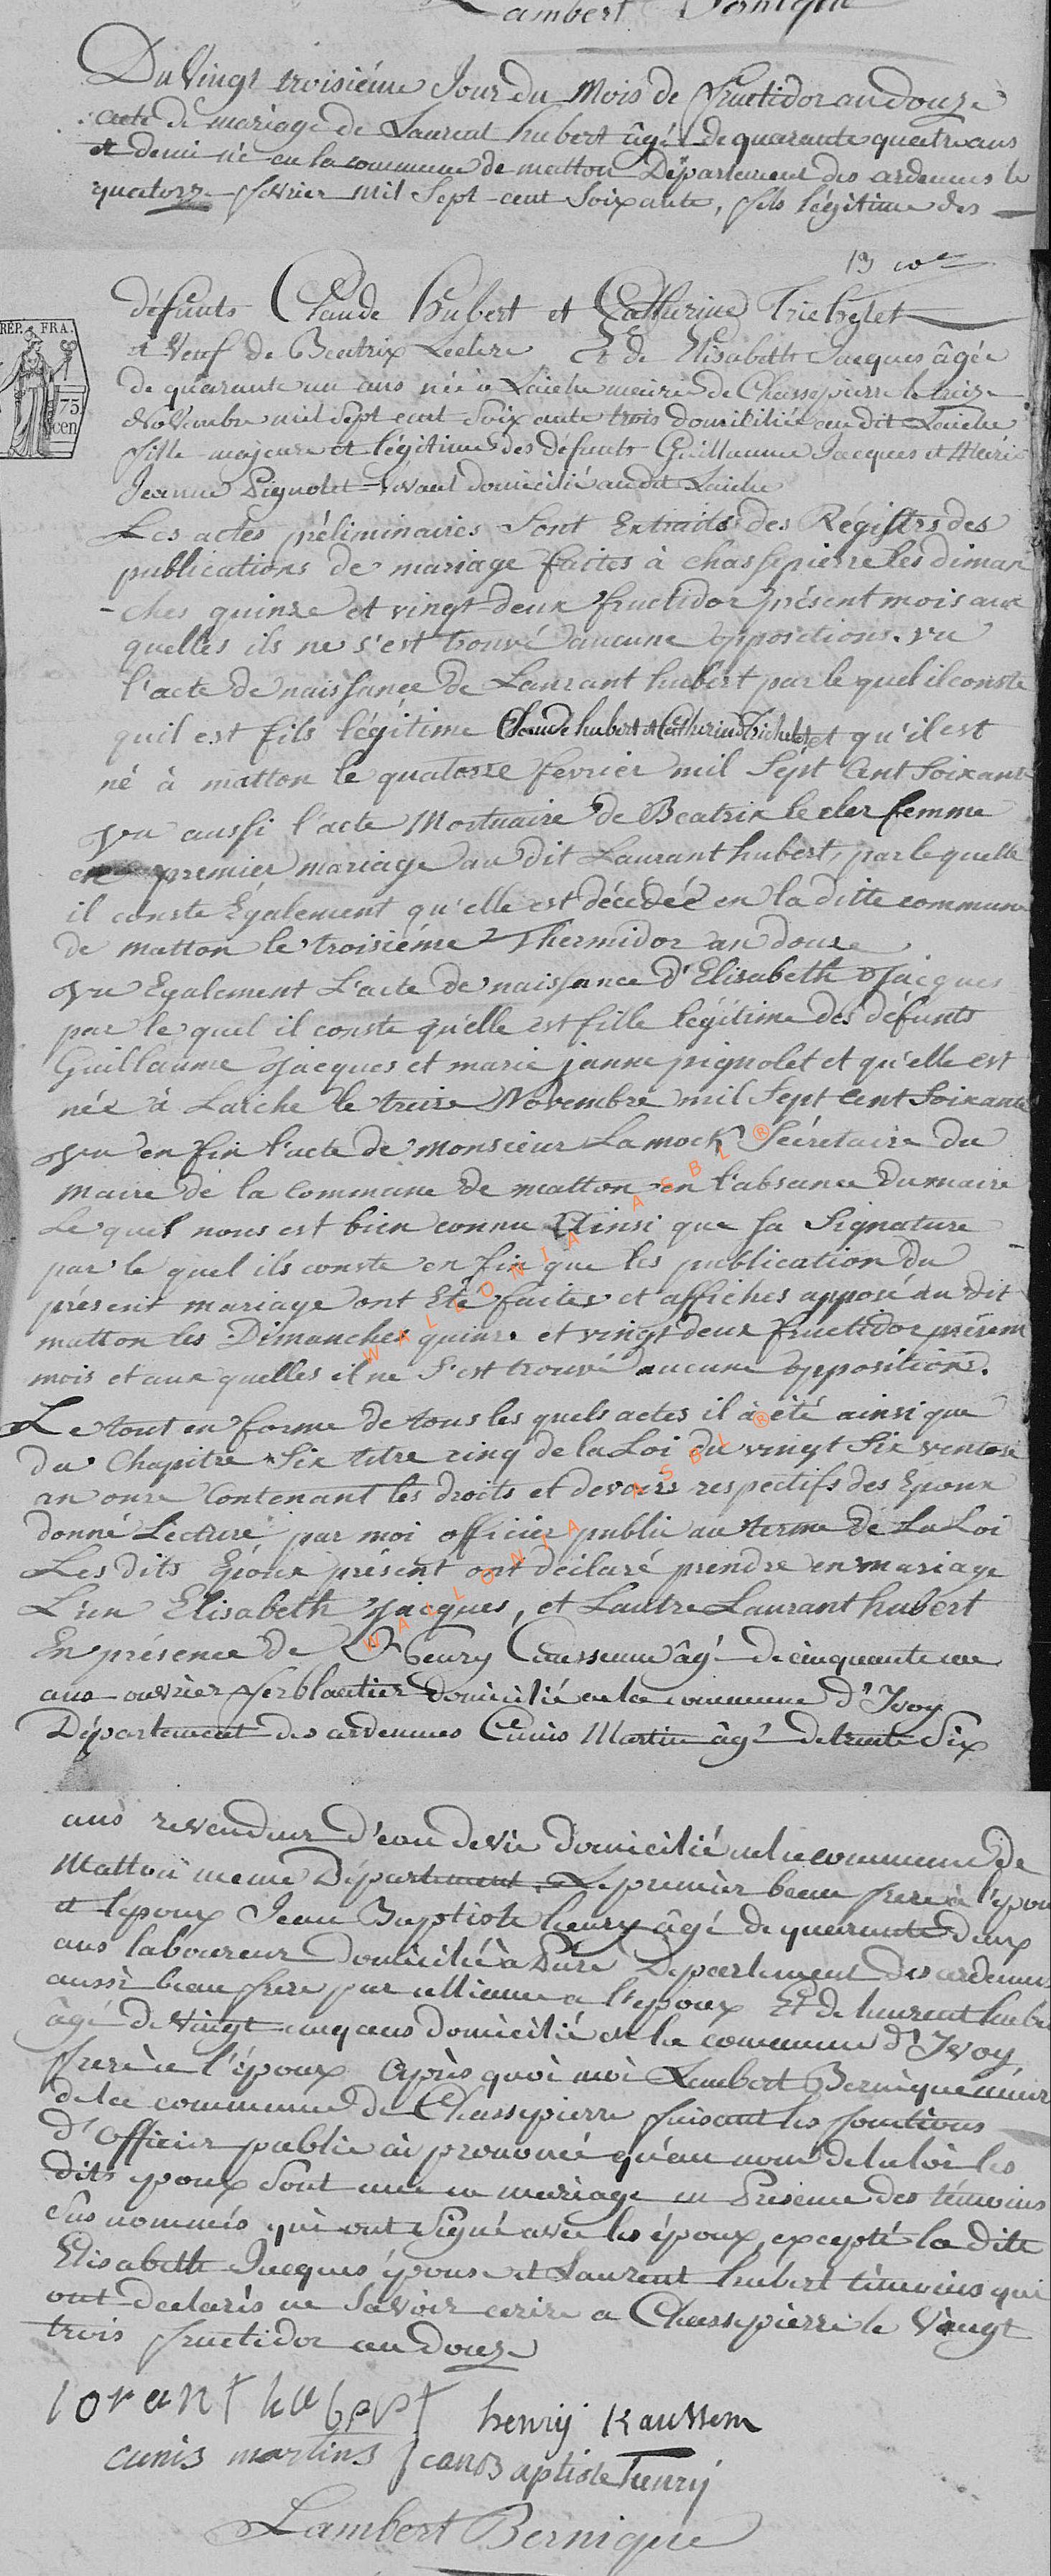 Lambert Bernique
Du vingt troisiéme Jour du Mois de fructidor an douze
acte de mariage de Laurent hubert âgé de quarante quatre ans
et demi né en la commune de matton Département des ardennes le
quatorze fevrier mil Sept cent Soixante, fils légitime des
19
défunts Claude hubert et Catherine Trichelet
REP. FRA.
75
cen
& veuf de Beatrix Leclere Et de Elisabeth Jacques âgée
de quarante un ans née à Laiche mairie de Chassepierre le treize
Novembre mil Sept cent Soixante trois domiciliée au dit Laiche
fille majeure et légitime des défunts Guillaume Jacques et Marie
Jeanne Pignolet vivant domicilié audit Laiche
Les actes préliminaires Sont Extraits des Régistrs des
publications de mariage faites à chassepierre les diman
-ches quinze et vingt deux fructidor présent mois aux
quelles ils ne s'est trouvé aucune oppositions. vu
l'acte de naissance de Laurant hubert par le quel il conste
quil est fils légitime Claude hubert et Catherine Trichelet, et qu'il est
né à matton le quatorze fevrier mil Sept Cent Soixante
vu aussi l'acte Mortuaire de Beatrix le cler femme
en premier mariage au dit Laurant hubert, par le quelle
il conste Également qu'elle est décédée en la ditte commune
de matton le troisiéme Thermidor an douze
vu Egalement L'acte de naissance d'Elisabeth Jacques
par le quel il conste qu'elle est fille légitime des défunts
Guillaume Jacques et marie janne pignolet et qu'elle est
née à Laiche le treize Novembre mil Sept Cent Soixante
vu en fin l'acte de Monsieur Lamock Sécretaire du
maire de la Commune de matton en l'absance du maire
Le quel nous est bien connu Ainsi que sa Signature
par le quel ils conste en fin que les publication du
présent mariage ont Eté faites et affiches apposé au dit
matton les Dimanches quinze et vingt deux fructidor présent
mois et aux quelles il ne S'est trouvé aucune oppositions.
Le tout en forme de tous les quels actes il à été ainsi que
du Chapitre Six titre cinq de la Loi du vingt Six ventose
an onze Contenant les droits et devoirs respectifs des Epoux
donné Lecture par moi officier public au terme de La Loi
Les dits Epoux présent ont déclaré prendre en mariage
L'un Elisabeth Jacques, et Lautre Laurant hubert
En présence de Henry Caussenne âgé de cinquante un
ans ouvrier ferblantier domicilié en la commune d'Ivoy
Département des ardennes Cunis Martin âgé de trente Six
ans revendeur d'eau de vie domicilié en la commune de
Matton meme Département, Le premier beau frere à l'épou
et l'époux Jean Baptiste henry âgé de quarante deux
ans laboureur domicilié à Puré Département des ardennes
aussi beau frere par alliance a l'Epoux Et de laurent hube
âgé de vingt cinq ans domicilié en la commune d'Ivoy,
frere a l'époux Après quoi moi Lambert Bernique maire
de la commune de Chassepierre faisant les fonctions
d'officier public ai prononcé qu'au nom de la loi les
dits epoux sont unis en mariage en Présence des témoins
Sus nommés qui ont Signé avec les époux, excepté la dite
Elisabeth Jacques épouse et Laurent hubert témoins qui
ont declarés ne Savoir ecrire a Chassepierre le Vingt
trois fructidor an douze
lorant hubert henrÿ Kaussem
cunis martins Jean Baptiste henrÿ
Lambert Bernique
WALLONIA ASBL ®
WALLONIA ASBL ®